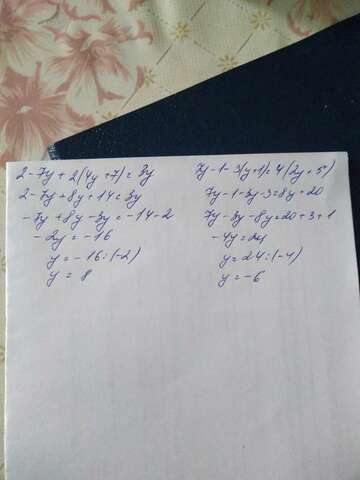 2-7y+2(4y+7)=3y
2-7y+8y+14=3y
-7y+8y-3y=-14-2
-2y=-16
y=-16:(-2)
y=8
7y-1-3(y+1)=4(2y+5)
7y-1-3y-3=8y+20
7y-3y-8y=20+3+1
-4y=24
y=24:(-4)
y=-6